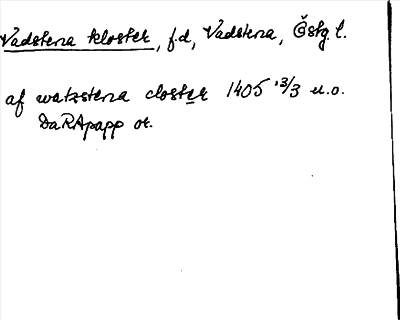 Vadstena kloster, f.d, Vadstena, Östg. l.
af watzstena closter 1405 13/3 u.o.
DaRApapp or.